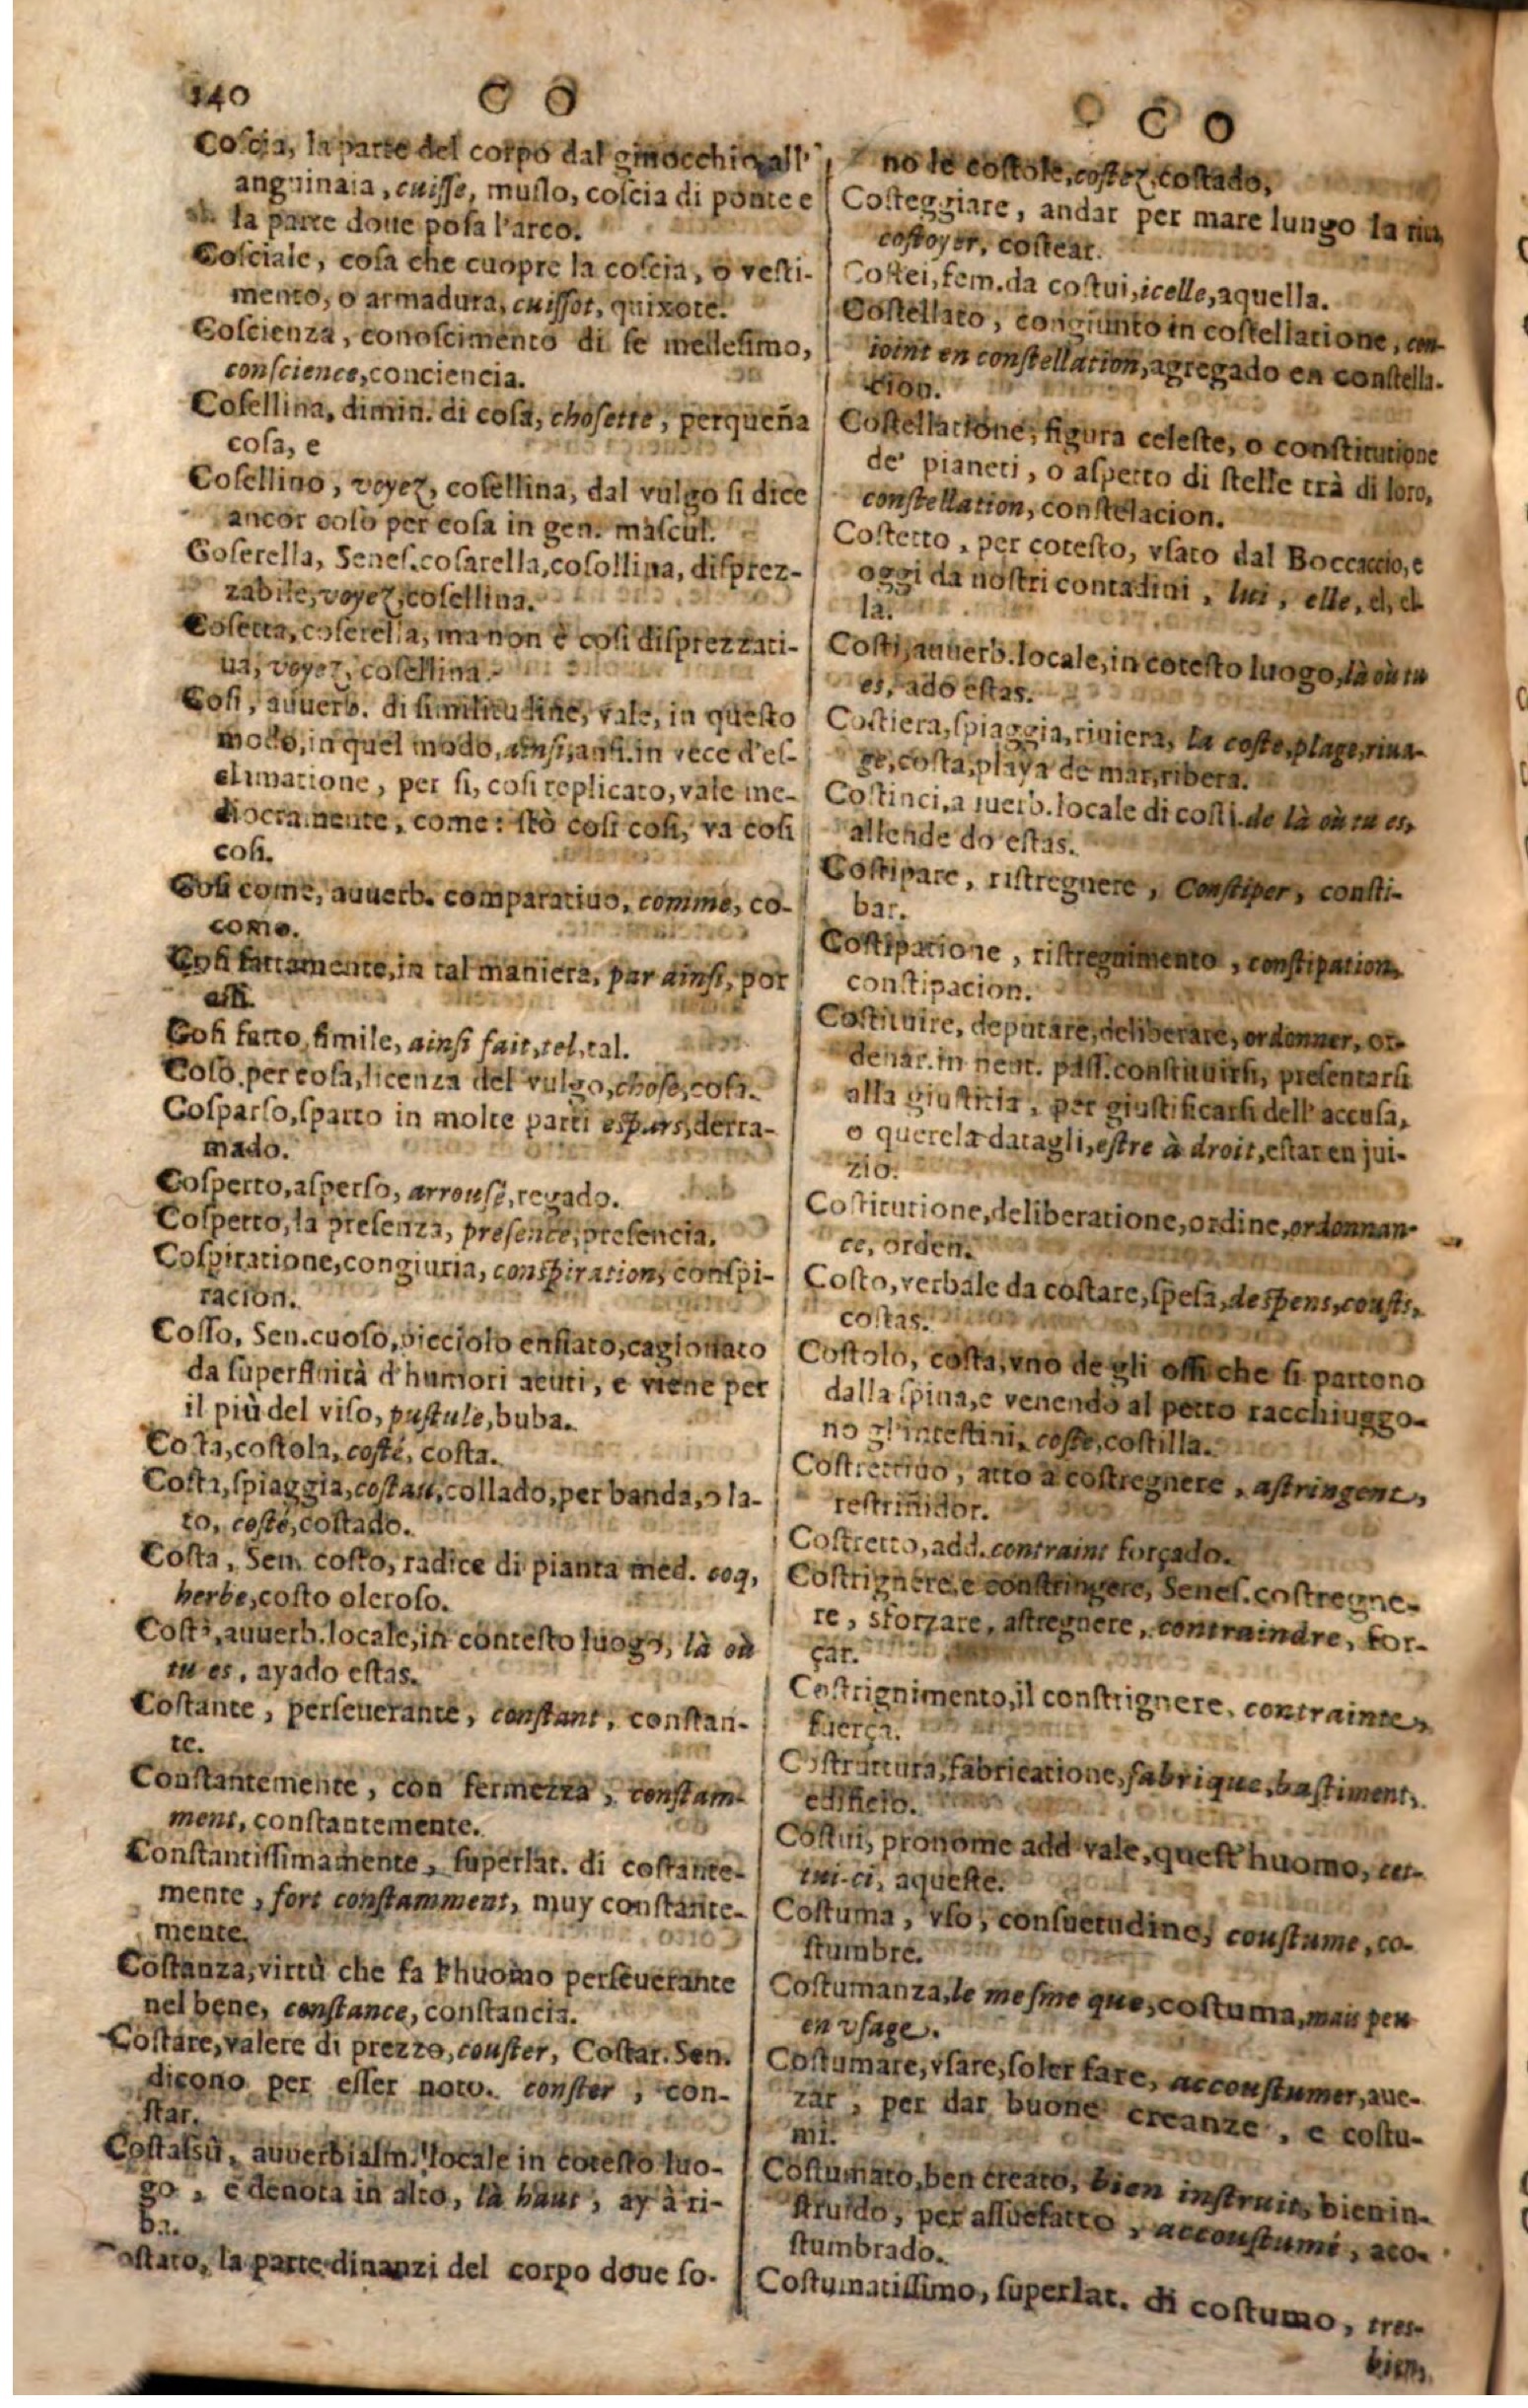 140
C O
C O
Coscia, la parte del corpo dal ginocchio all'
anguinaia, cuisse, muslo, coscia di ponte e
la parte doue posa l'arco.
Cosciale, cosa che cuopre la coscia, o vesti-
mento, o armadura, cuissot, quixote.
Coscienza, conoscimento di se medesimo,
conscience, conciencia.
Cosellina, dimin. di cosa, chosette, perqueña
cosa, e
Cosellino, voyez, cosellina, dal vulgo si dice
ancor coso per cosa in gen. mascul.
Coserella, Senes. cosarella, cosollina, disprez-
zabile, voyez, cosellina.
Cosetta, coserella, ma non è cosi disprezzati-
ua, voyez, cosellina.
Cosi, auuerb. di similitudine, vale, in questo
modo, in quel modo, ainsi, ansi. in vece d'es-
climatione, per si, cosi replicato, vale me-
diocramente, come: stò cosi cosi, va cosi
cosi.
Cosi come, auuerb. comparatiuo, comme, co-
como.
Cosi fattamente, in tal maniera, par ainsi, por
assi.
Cosi fatto, simile, ainsi fait, tel, tal.
Coso, per cosa, licenza del vulgo, chose, cosa.
Cosparso, sparto in molte parti espars, derra-
mado.
Cosperto, asperso, arrousé, regado.
Cospetto, la presenza, presence, presencia.
Cospiratione, congiuria, conspiration, conspi-
racion.
Cosso, Sen. cuoso, picciolo enfiato, cagionato
da superfluità d'humori acuti, e viene per
il più del viso, pustule, buba.
Costa, costola, costé, costa.
Costa, spiaggia, costau, collado, per banda, o la-
to, costé, costado.
Costa, Sen. costo, radice di pianta med. coq,
herbe, costo oleroso.
Costì, auuerb. locale, in contesto luogo, là où
tu es, ayado estas.
Costante, perseuerante, constant, constan-
te.
Constantemente, con fermezza, constam-
ment, constantemente.
Constantissimamente, superlat. di costante-
mente, fort constamment, muy constante-
mente.
Costanza, virtù che fa l'huomo perseuerante
nel bene, constance, constancia.
Costare, valere di prezzo, couster, Costar. Sen.
dicono per esser noto. conster, con-
star.
Costassù, auuerbialm. locale in cotesto luo-
go, e denota in alto, là haut, ay à ri-
ba.
Costato, la parte dinanzi del corpo doue so-
no le costole, costez, costado,
Costeggiare, andar per mare lungo la riua,
costoyer, costear.
Costei, fem. da costui, icelle, aquella.
Costellato, congiunto in costellatione, con-
ioint en constellation, agregado en constella-
cion.
Costellatione, figura celeste, o constitutione
de' pianeti, o aspetto di stelle trà di loro,
constellation, constelacion.
Costetto, per cotesto, vsato dal Boccaccio, e
oggi da nostri contadini, lui, elle, el, el-
la.
Costi, auuerb. locale, in cotesto luogo, là où tu
es, ado estas.
Costiera, spiaggia, riuiera, la coste, plage, riua-
ge, costa, playa de mar, ribera.
Costinci, auuerb. locale di costì. de là où tu es,
allende do estas.
Costipare, ristregnere, Constiper, consti-
bar.
Costipatione, ristregnimento, constipation,
constipacion.
Costituire, deputare, deliberare, ordonner, or-
denar. in neut. pass. constituirsi, presentarsi
alla giustitia, per giustificarsi dell' accusa,
o querela datagli, estre à droit, estar en jui-
zio.
Costitutione, deliberatione, ordine, ordonnan-
ce, orden.
Costo, verbale da costare, spesa, despens, cousts,
costas.
Costolo, costa, vno de gli ossi che si partono
dalla spina, e venendo al petto racchiuggo-
no gl'intestini, coste, costilla.
Costrettiuo, atto à costregnere, astringent,
restriñidor.
Costretto, add. contraint forçado.
Costrignere, e constringere, Senes. costregne-
re, sforzare, astregnere, contraindre, for-
çar.
Costrignimento, il constrignere, contrainte,
fuerça.
Costruttura, fabricatione, fabrique, bastiment,
edificio.
Costui, pronome add vale, quest'huomo, ces-
tui-ci, aqueste.
Costuma, vso, consuetudine, coustume, co-
stumbre.
Costumanza, le mesme que, costuma, mais peu
en vsage.
Costumare, vsare, soler fare, accoustumer, aue-
zar, per dar buone creanze, e costu-
mi.
Costumato, ben creato, bien instruit, bien in-
struido, per assuefatto, accoustumé, aco-
stumbrado.
Costumatissimo, superlat. di costumo, tres-
bien,